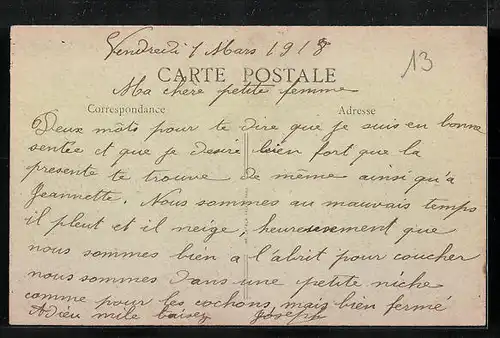 Vendredi 1 Mars 1918
13
CARTE POSTALE
Ma chère petite femme
Correspondance
Adresse
Deux môts pour te dire que je suis en bonne
sentée et que je desire bien fort que la
presente te trouve de même ainsi qu'a
Jeannette. Nous sommes au mauvais temps
il pleut et il neige, heureusement que
nous sommes bien a l'abrit pour coucher
nous sommes dans une petite niche
comme pour les cochons, mais bien fermé
Adieu mile baisez Joseph